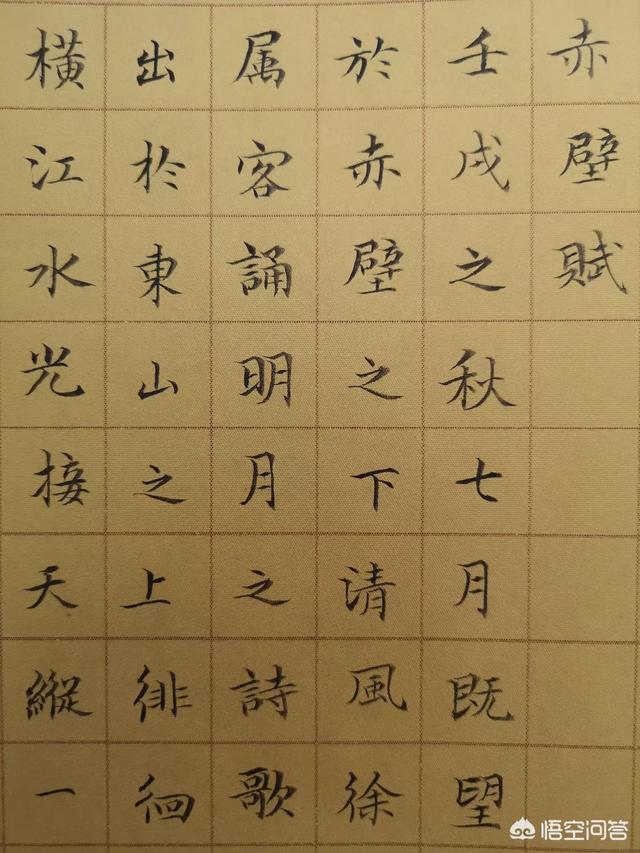 赤壁賦
壬戌之秋七月既望
於赤壁之下清風徐
属客誦明月之詩歌
出於東山之上徘徊
横江水光接天縱一
悟空问答